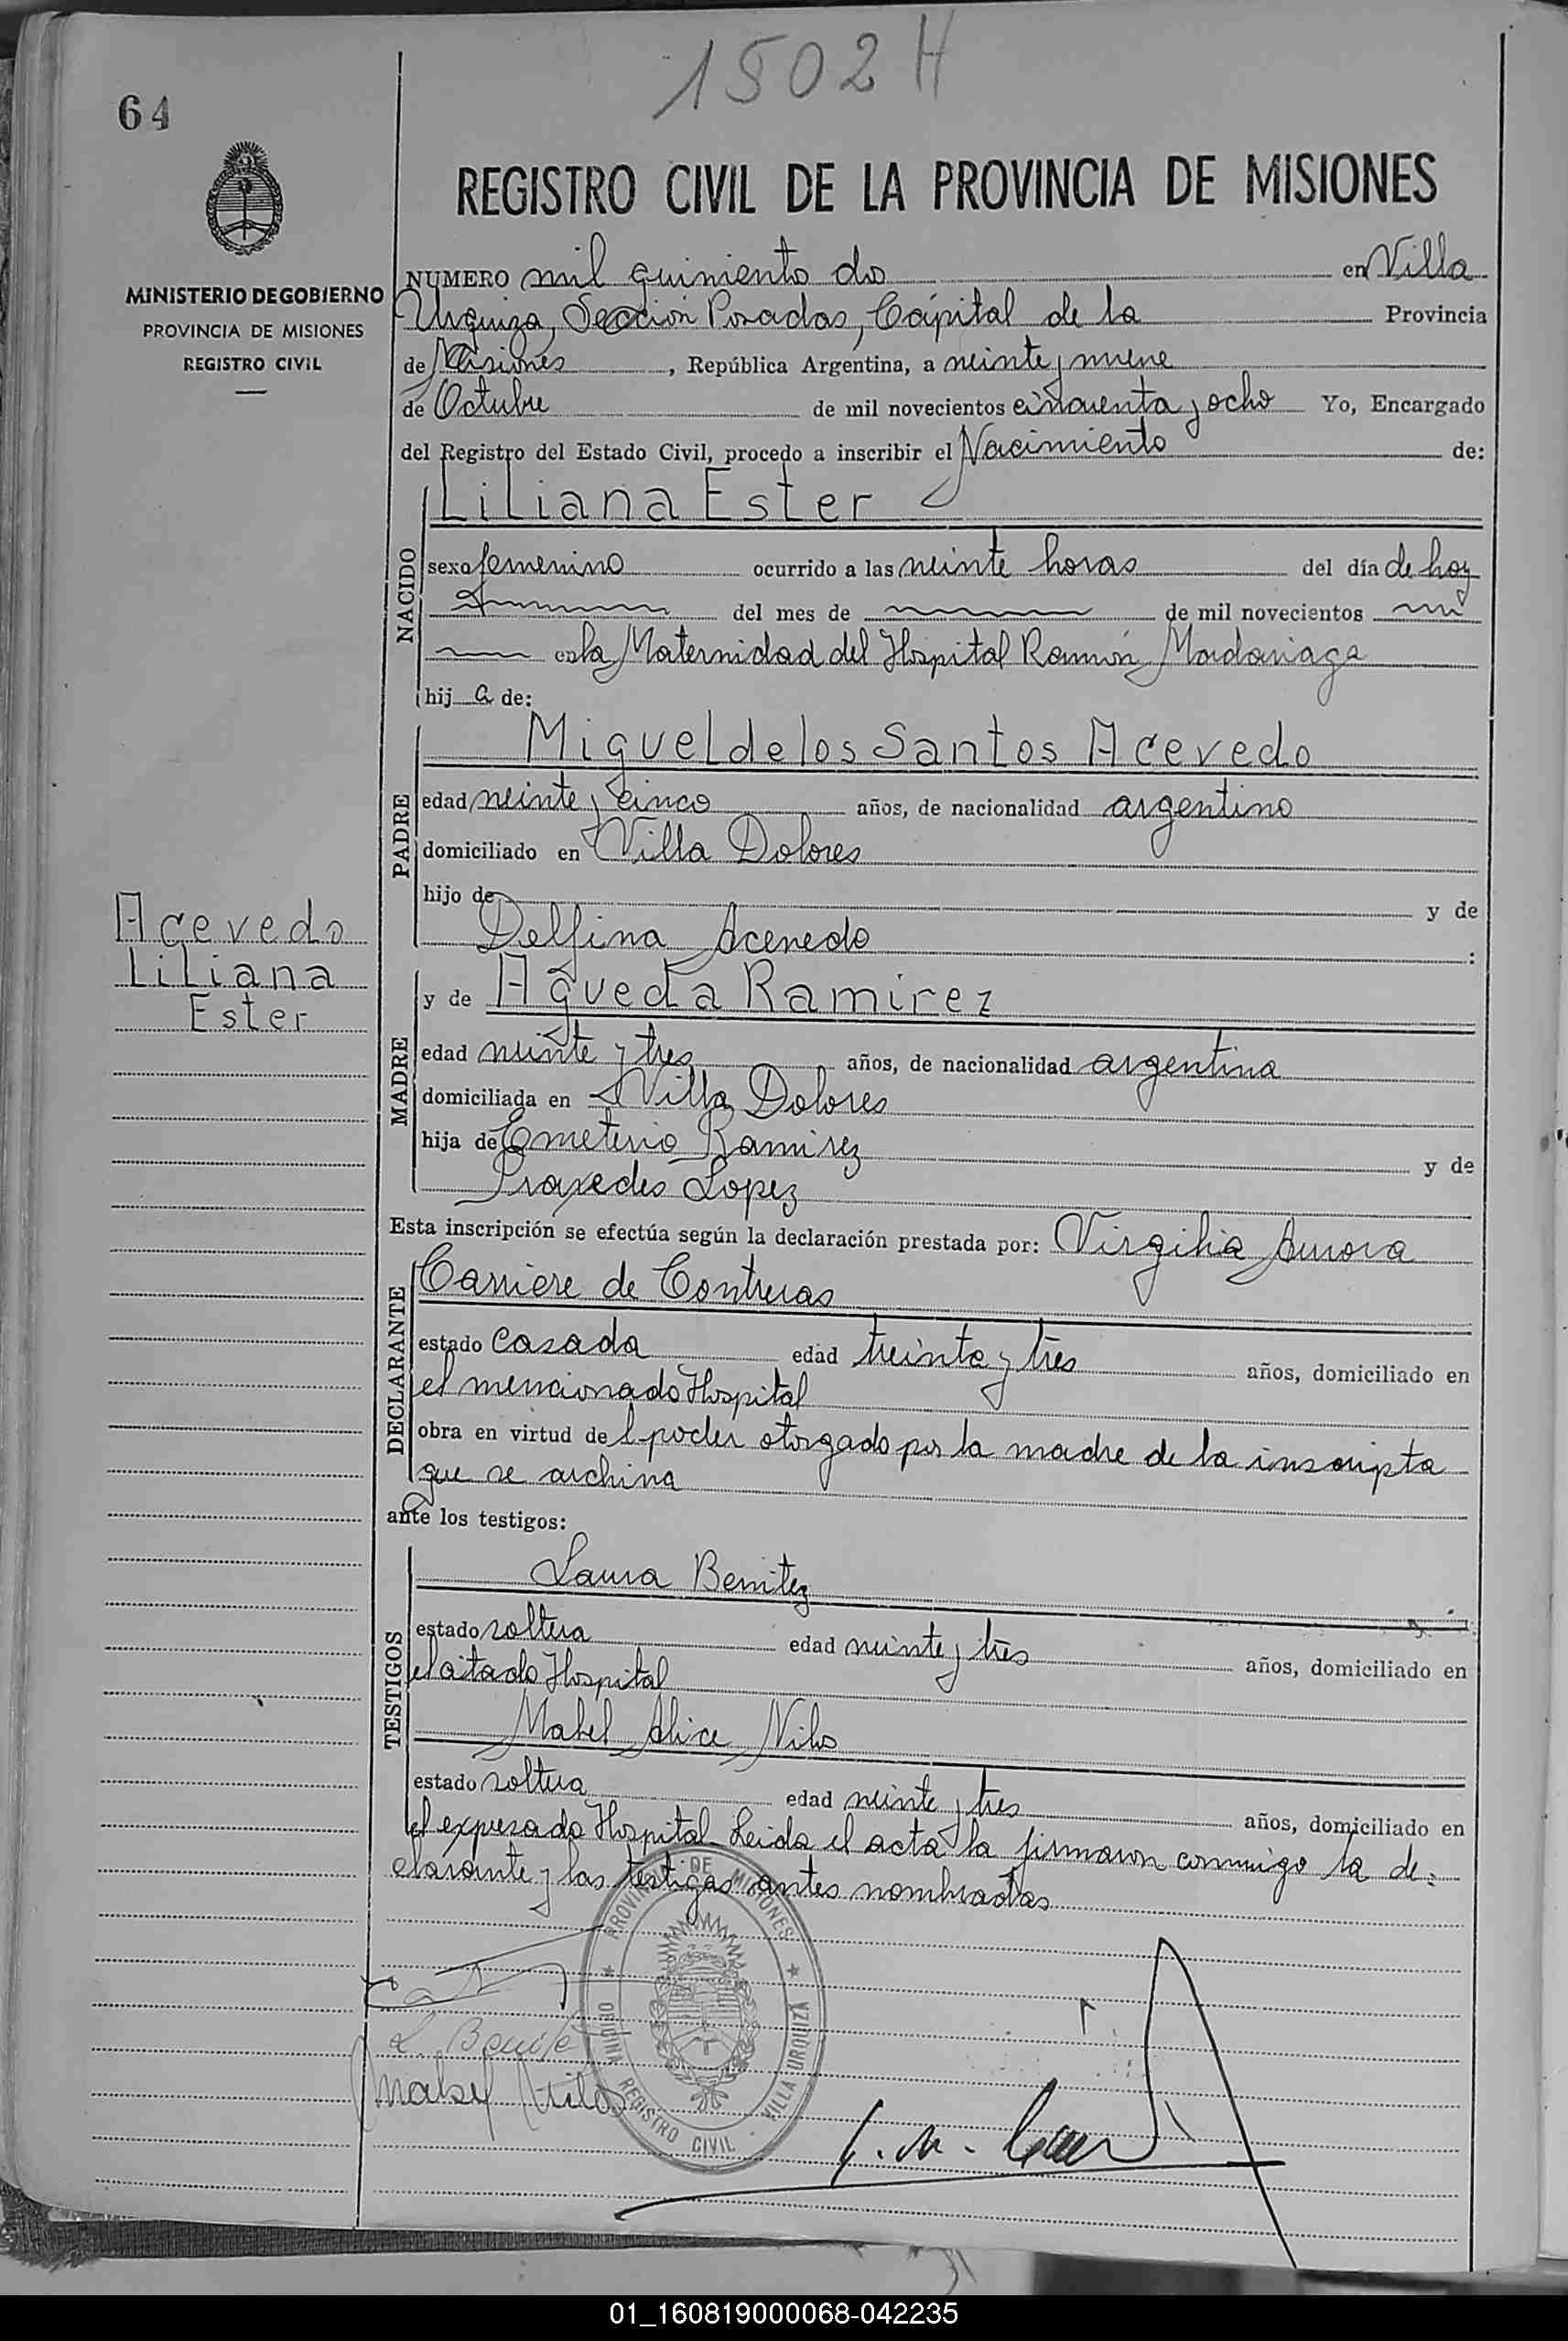 1502 H
64
REGISTRO CIVIL DE LA PROVINCIA DE MISIONES
MINISTERIO DE GOBIERNO
PROVINCIA DE MISIONES
REGISTRO CIVIL
NUMERO mil quiniento do en Villa
Urquiza, Sección Posadas, Cápital de la Provincia
de Misiones, República Argentina, a veinte y nueve
de Octubre de mil novecientos cincuenta y ocho Yo, Encargado
del Registro del Estado Civil, procedo a inscribir el Nacimiento de:
Liliana Ester
NACIDO
sexo femenino ocurrido a las veinte horas del día de hoy
del mes de de mil novecientos
en la Maternidad del Hospital Ramón Madariaga
hij a de:
PADRE
Miguel de los Santos Acevedo
edad veinte y cinco años, de nacionalidad argentino
domiciliado en Villa Dolores
hijo de y de
Delfina Acevedo :
Acevedo
Liliana
Ester
MADRE
y de Agueda Ramirez
edad veinte y tres años, de nacionalidad argentina
domiciliada en Villa Dolores
hija de Emeterio Ramirez y de
Praxedes Lopez
Esta inscripción se efectúa según la declaración prestada por: Virgilia Aurora
DECLARANTE
Carriere de Contreras
estado casada edad treinta y tres años, domiciliado en
el mencionado Hospital
obra en virtud del poder otorgado por la madre de la inscripta
que se archiva
ante los testigos:
TESTIGOS
Laura Benitez
estado soltera edad veinte y tres años, domiciliado en
el citado Hospital
Mabel Alice Nilos
estado soltera edad veinte y tres años, domiciliado en
el expresado Hospital Leida el acta la firmaron conmigo la de-
clarante y las testigas antes nombradas
PROVINCIA DE MISIONES
OFICINA REGISTRO CIVIL - VILLA URQUIZA
Mabel Nilos
01_160819000068-042235